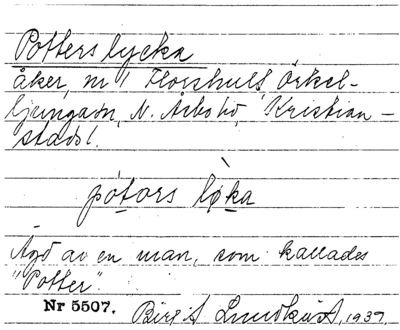 Potters lycka
åker, nr 1 Florshult Örkel-
ljungasn, N. Åsbo hd, Kristian-
stads l.
pótors lø̀ka
Ägd av en man, som kallades
"Potter".
Nr 5507. Birgit Lundkvist, 1937.